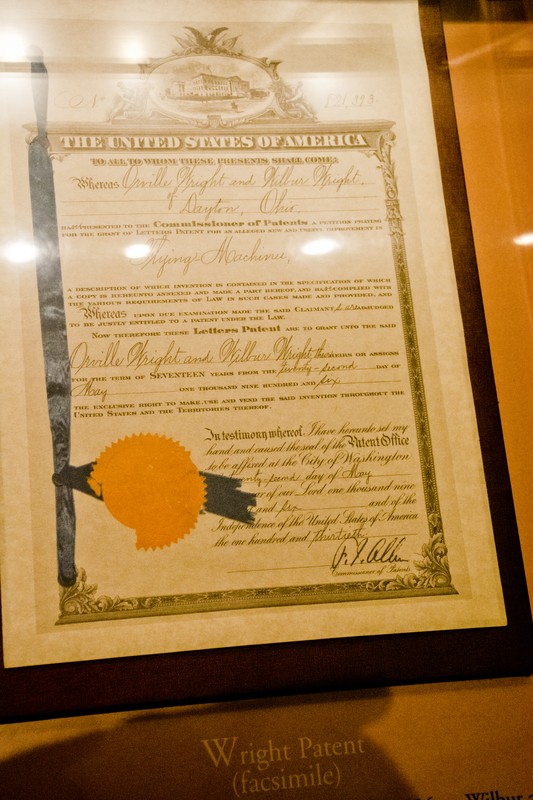 No 821,393.
THE UNITED STATES OF AMERICA
TO ALL TO WHOM THESE PRESENTS SHALL COME:
Whereas Orville Wright and Wilbur Wright,
of
Dayton, Ohio,
HAVE PRESENTED TO THE Commissioner of Patents A PETITION PRAYING
FOR THE GRANT OF LETTERS PATENT FOR AN ALLEGED NEW AND USEFUL IMPROVEMENT IN
Flying Machines,
A DESCRIPTION OF WHICH INVENTION IS CONTAINED IN THE SPECIFICATION OF WHICH
A COPY IS HEREUNTO ANNEXED AND MADE A PART HEREOF, AND COMPLIED WITH
THE VARIOUS REQUIREMENTS OF LAW IN SUCH CASES MADE AND PROVIDED; AND
Whereas UPON DUE EXAMINATION MADE THE SAID CLAIMANTS are ADJUDGED
TO BE JUSTLY ENTITLED TO A PATENT UNDER THE LAW.
NOW THEREFORE THESE Letters Patent ARE TO GRANT UNTO THE SAID
Orville Wright and Wilbur Wright, their HEIRS OR ASSIGNS
FOR THE TERM OF SEVENTEEN YEARS FROM THE twenty-second DAY OF
May ONE THOUSAND NINE HUNDRED AND six
THE EXCLUSIVE RIGHT TO MAKE, USE AND VEND THE SAID INVENTION THROUGHOUT THE
UNITED STATES AND THE TERRITORIES THEREOF.
In testimony whereof, I have hereunto set my
hand and caused the seal of the Patent Office
to be affixed at the City of Washington
enty-second day of May
of our Lord one thousand nine
and six and of the
Independence of the United States of America
the one hundred and thirtieth.
F. I. Allen
Commissioner of Patents.
Wright Patent
(facsimile)
Wilbur